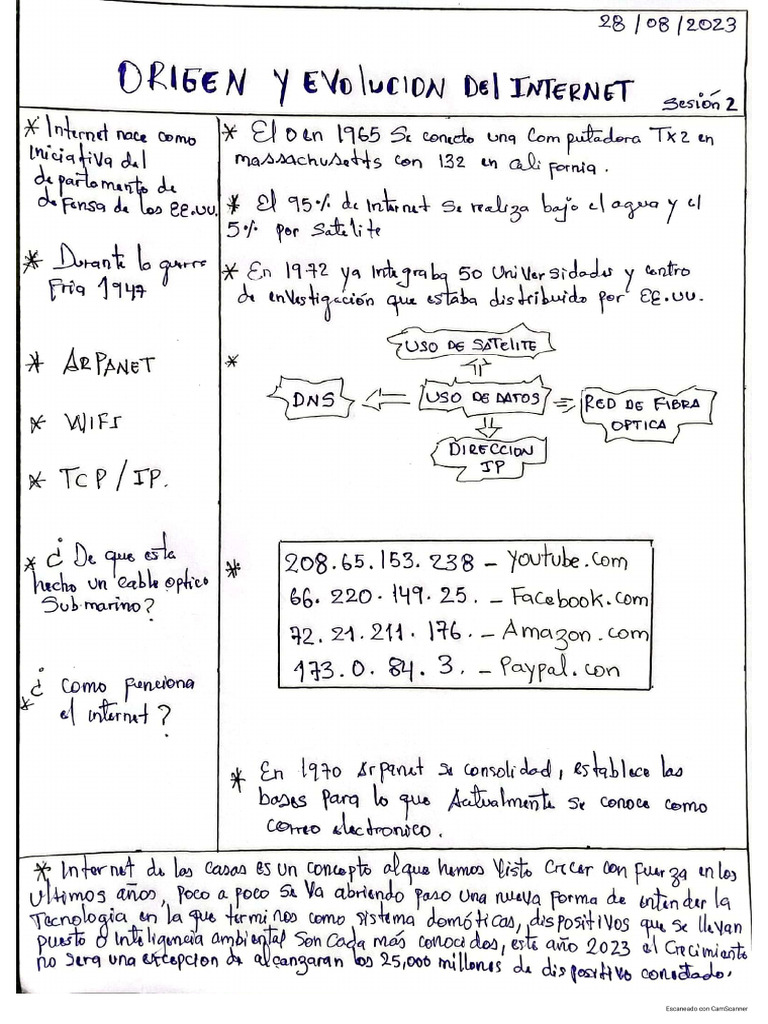 28/08/2023
ORIGEN Y EVOLUCION Del INTERNET
Sesión 2
* Internet nace como
iniciativa del
departamento de
defensa de los EE.UU.
* Durante la guerra
Fria 1947
* ARPANET
* WIFI
* TCP/IP.
* ¿ De que esta
hecho un cable optico
Submarino?
* ¿ Como funciona
el internet?
* El 0 en 1965 Se conecto una Computadora Tx2 en
massachusetts con 132 en California.
* El 95% de Internet se realiza bajo el agua y el
5% por Satelite
* En 1972 ya integraba 50 Universidades y centro
de investigación que estaba distribuido por EE.UU.
*
USO DE SATELITE
DNS
USO DE DATOS
RED DE FIBRA
OPTICA
DIRECCION
IP
*
208.65.153.238 - Youtube.com
66.220.149.25. - Facebook.com
72.21.211.176. - Amazon.com
173.0.84.3. - Paypal.con
* En 1970 Arpanet se consolidad, establece las
bases Para lo que Actualmente se conoce como
correo electronico.
* Internet de las casas es un concepto al que hemos visto crecer con fuerza en los
ultimos años, poco a poco se va abriendo paso una nueva forma de entender la
Tecnologia en la que terminos como sistema domóticas, dispositivos que se llevan
puesto o Inteligencia ambiental Son Cada más conocidos, este año 2023 el Crecimiento
no sera una excepcion de alcanzaran los 25,000 millones de dispositivo conectado.
Escaneado con CamScanner